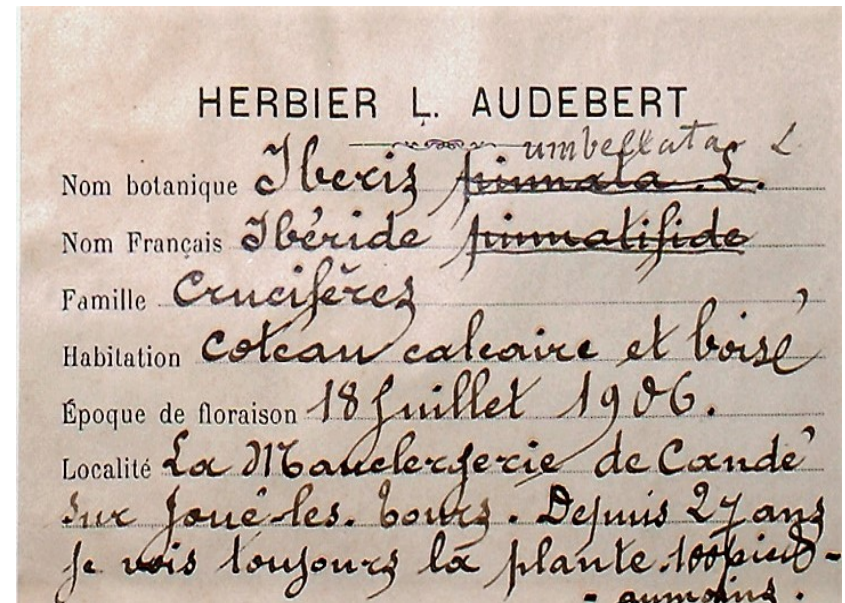 HERBIER L. AUDEBERT
umbellata L
Nom botanique Iberis pinnata L.
Nom Français Ibéride pinnatifide
Famille Crucifères
Habitation Coteau calcaire et boisé
Époque de floraison 18 Juillet 1906.
Localité La Mauclergerie de Candé
sur Joué-les-Tours. Depuis 27 ans
je vois toujours la plante. 100 pieds -
- aumoins.